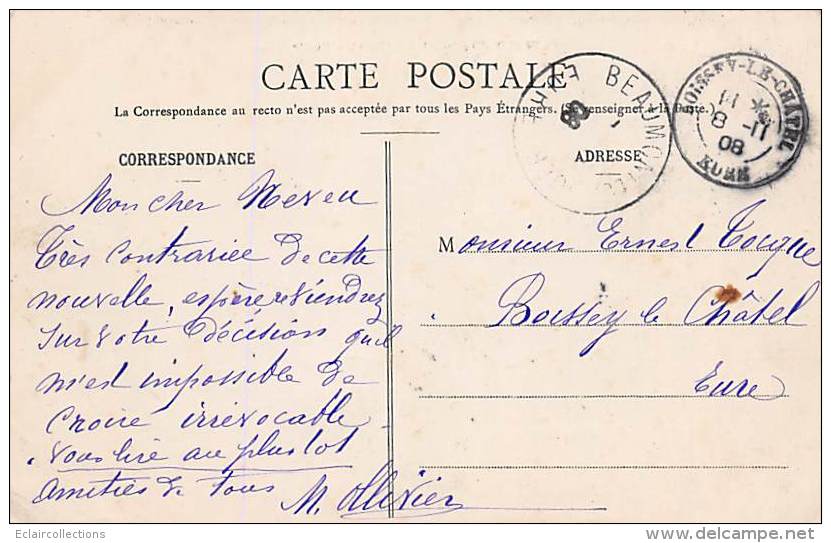 CARTE POSTALE
La Correspondance au recto n'est pas acceptée par tous les Pays Étrangers. (Se renseigner à la Poste.)
CORRESPONDANCE
ADRESSE
BEAUMONT
BOISSEY-LE-CHATEL
11
8 -11
08
EURE
Mon cher Neveu
Très contrariée de cette
nouvelle, espère reviendrez
sur votre décision qu'il
m'est impossible de
croire irrévocable
vous lire au plus tot
amitiés de tous
M. Ollivier
Monsieur Ernest Tocque
Boissey le Châtel
Eure
Eclaircollections
www.delcampe.net